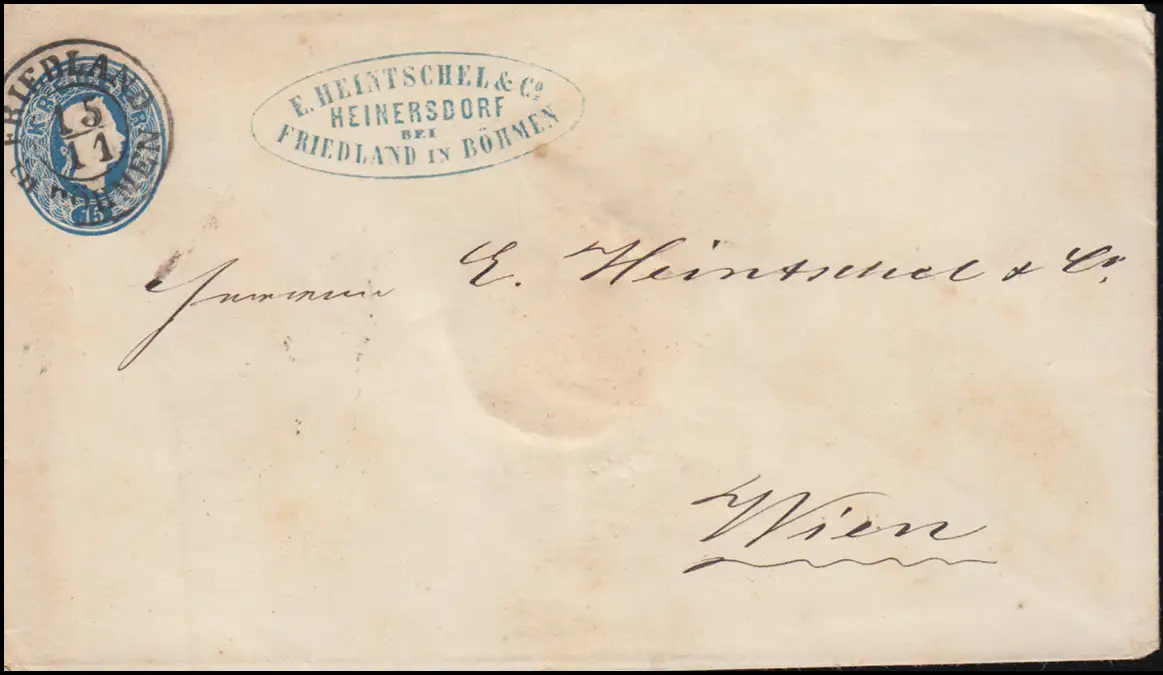 FRIEDLAND
IN BÖHMEN
15
11
KREUZER
15
E. HEINTSCHEL & Cº
HEINERSDORF
BEI
FRIEDLAND IN BÖHMEN
E. Heintschel & Co.
Wien